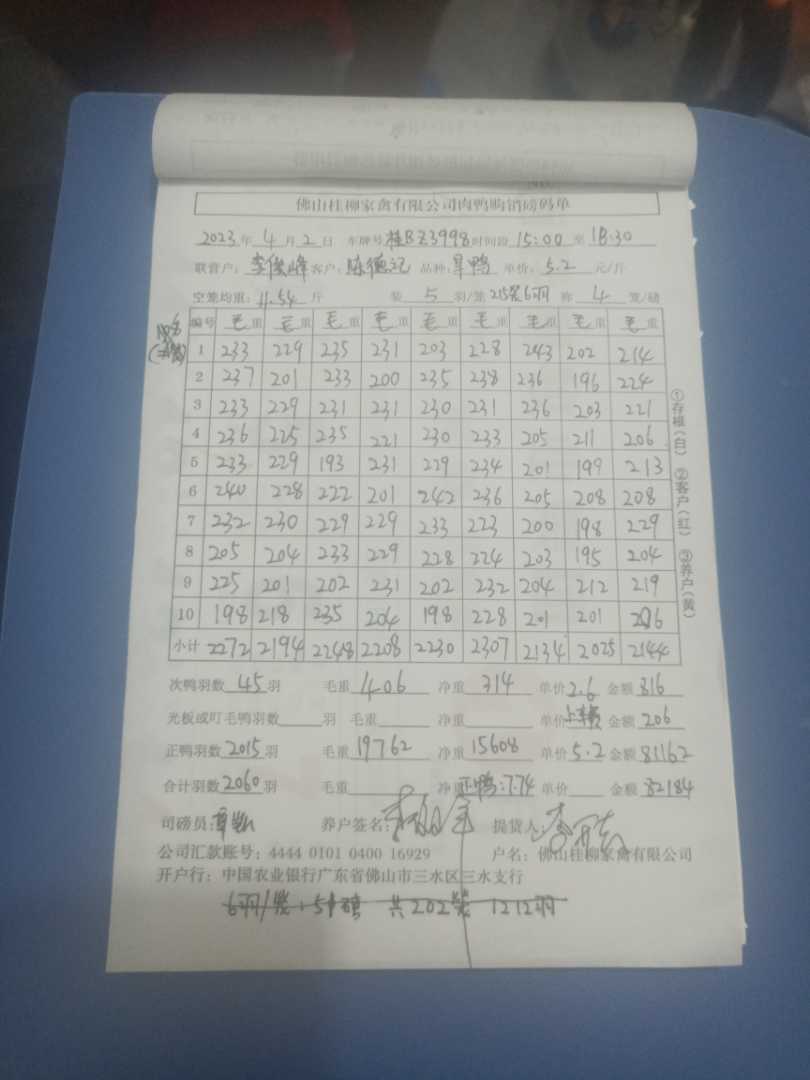 佛山桂柳家禽有限公司肉鸭购销磅码单
2023年 4月 2日 车牌号 桂BZ3998 时间段 15:00 至 18:30
联营户: 李俊峰 客户: 陈德记 品种: 旱鸭 单价: 5.2 元/斤
空笼均重: 11.54 斤 装 5 羽/笼 215笼6羽 称 4 笼/磅
编号 毛重 毛重 毛重 毛重 毛重 毛重 毛重 毛重 毛重
1 233 229 235 231 203 228 243 202 214
2 237 201 233 200 235 238 236 196 224
3 233 229 231 231 230 231 236 203 221
4 236 225 235 221 230 233 205 211 206
5 233 229 193 231 229 234 201 199 213
6 240 228 222 201 242 236 205 208 208
7 232 230 229 229 233 223 200 198 229
8 205 204 233 229 228 224 203 195 204
9 225 201 202 231 202 232 204 212 219
10 198 218 235 204 198 228 201 201 206
小计 2272 2194 2248 2208 2230 2307 2134 2025 2144
①存根(白) ②客户(红) ③养户(黄)
次鸭羽数 45 羽 毛重 406 净重 314 单价 2.6 金额 816
光板或叮毛鸭羽数 羽 毛重 净重 单价 金额 206
正鸭羽数 2015 羽 毛重 19762 净重 15608 单价 5.2 金额 81162
合计羽数 2060 羽 毛重 净重 正鸭:7.74 单价 金额 82184
司磅员: 养户签名: 提货人:
公司汇款账号: 4444 0101 0400 16929 户名: 佛山桂柳家禽有限公司
开户行: 中国农业银行广东省佛山市三水区三水支行
6羽/笼:51磅 共202笼 1212羽